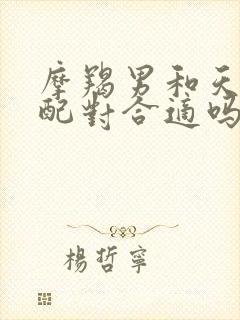 摩羯男和天
配對合適嗎
楊哲寧